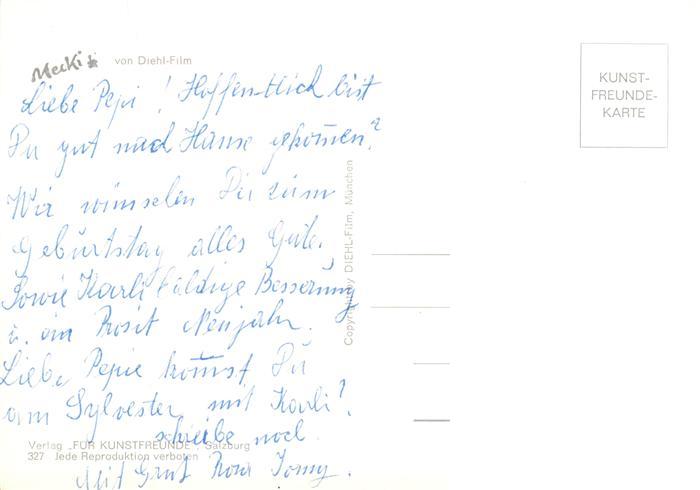 Mecki von Diehl-Film
Liebe Pepi! Hoffentlich bist
Du gut nach Hause gekomen?
Wir wünschen Dir zum
Geburtstag alles Gute.
Sowie Karli baldige Besserung
u. ein Prosit Neujahr.
Liebe Pepie komst Du
am Sylvester mit Karli?
schreibe noch.
Mit Gruß Tomy.
Verlag „FÜR KUNSTFREUNDE", Salzburg
327 Jede Reproduktion verboten
Copyright by DIEHL-Film, München
KUNST-
FREUNDE-
KARTE